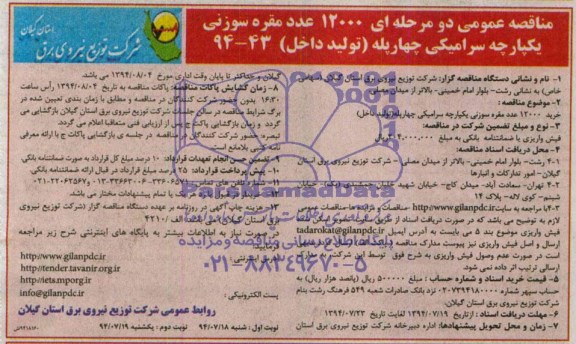 مناقصه عمومی دو مرحله ای ۱۲۰۰۰ عدد مقره سوزنی
یکپارچه سرامیکی چهارپله (تولید داخل) ۴۳-۹۴
استان گیلان
شرکت توزیع نیروی برق
۱- نام و نشانی دستگاه مناقصه گزار: شرکت توزیع نیروی برق استان گیلان (سهامی
خاص) به نشانی رشت- بلوار امام خمینی- بالاتر از میدان مصلی
۲- موضوع مناقصه:
خرید ۱۲۰۰۰ عدد مقره سوزنی یکپارچه سرامیکی چهارپله (تولید داخل)
۳- نوع و مبلغ تضمین شرکت در مناقصه:
فیش واریزی یا ضمانتنامه بانکی به مبلغ
۴- محل دریافت اسناد مناقصه:
۴-۱ رشت- بلوار امام خمینی- بالاتر از میدان مصلی - شرکت توزیع نیروی برق استان
گیلان- امور تدارکات و انبارها
۴-۲ تهران- سعادت آباد- میدان کاج- خیابان شهید
شبنم- کوی لاله- پلاک ۱۴
۴-۳ مراجعه به سایت http://www.gilanpdc.ir مناقصات و مزایده ها-مناقصات عمومی
لازم به توضیح می باشد که در صورت دریافت اسناد از طریق سایت
فیش واریزی موضوع بند ۵ می بایست به آدرس ایمیل tadarokat@gilanpdc.ir
ارسال و اصل فیش واریزی نیز پیوست مدارک
است در صورت عدم وصول فیش واریزی به شرح فوق توسط این شرکت، به
ارسالی ترتیب اثر داده نمی شود.
۵- قیمت خرید اسناد و شماره حساب: مبلغ ۵۰۰۰۰۰ ریال (پانصد هزار ریال) به
حساب سپهر شماره ۰۲۰۷۳۹۴۱۸۰۰۰ نزد بانک صادرات شعبه ۵۴۹ فرهنگ رشت بنام
شرکت توزیع نیروی برق استان گیلان.
۶- مهلت دریافت اسناد: از تاریخ ۱۳۹۴/۰۷/۱۹ لغایت تاریخ ۱۳۹۴/۰۷/۲۳
۷- زمان و محل تحویل پیشنهادها: اداره دبیرخانه شرکت توزیع نیروی برق استان
گیلان و حداکثر تا پایان وقت اداری مورخ ۱۳۹۴/۰۸/۰۴ می باشد.
۸- زمان گشایش پاکات مناقصه: پاکات مناقصه به تاریخ ۱۳۹۴/۰۸/۰۴ رأس ساعت
۱۶:۳۰ بدون حضور شرکت کنندگان در مناقصه و مطابق با زمان بندی تعیین شده در
برگ شرایط مناقصه در سالن جلسات شرکت توزیع نیروی برق استان گیلان بازگشایی می
گردد و زمان بازگشایی پاکات ج پس از ارزیابی فنی متعاقبا اعلام می گردد.
تبصره: حضور شرکت کنندگان در مناقصه در جلسه ی بازگشایی پاکات ج با ارائه معرفی
نامه کتبی بلامانع است.
۹- تضمین حسن انجام تعهدات قرارداد: ۱۰ درصد مبلغ کل قرارداد به صورت ضمانتنامه بانکی.
۱۰- پیش پرداخت قرارداد: ۲۵ درصد مبلغ قرارداد در قبال ارائه ضمانتنامه بانکی.
۱۳- هزینه چاپ آگهی در روزنامه بر عهده
در صورت نیاز به اطلاعات بیشتر به پایگاه های اینترنتی شرح زیر مراجعه
http://www.gilanpdc.ir
http://tender.tavanir.org.ir
http://iets.mporg.ir
پست الکترونیکی: info@gilanpdc.ir
روابط عمومی شرکت توزیع نیروی برق استان گیلان
نوبت اول: شنبه ۹۴/۰۷/۱۸ نوبت دوم: یکشنبه ۹۴/۰۷/۱۹
ParsNamadData
پایگاه اطلاع رسانی مناقصه و مزایده
۰۲۱-۸۸۳۴۹۶۷۰-۵